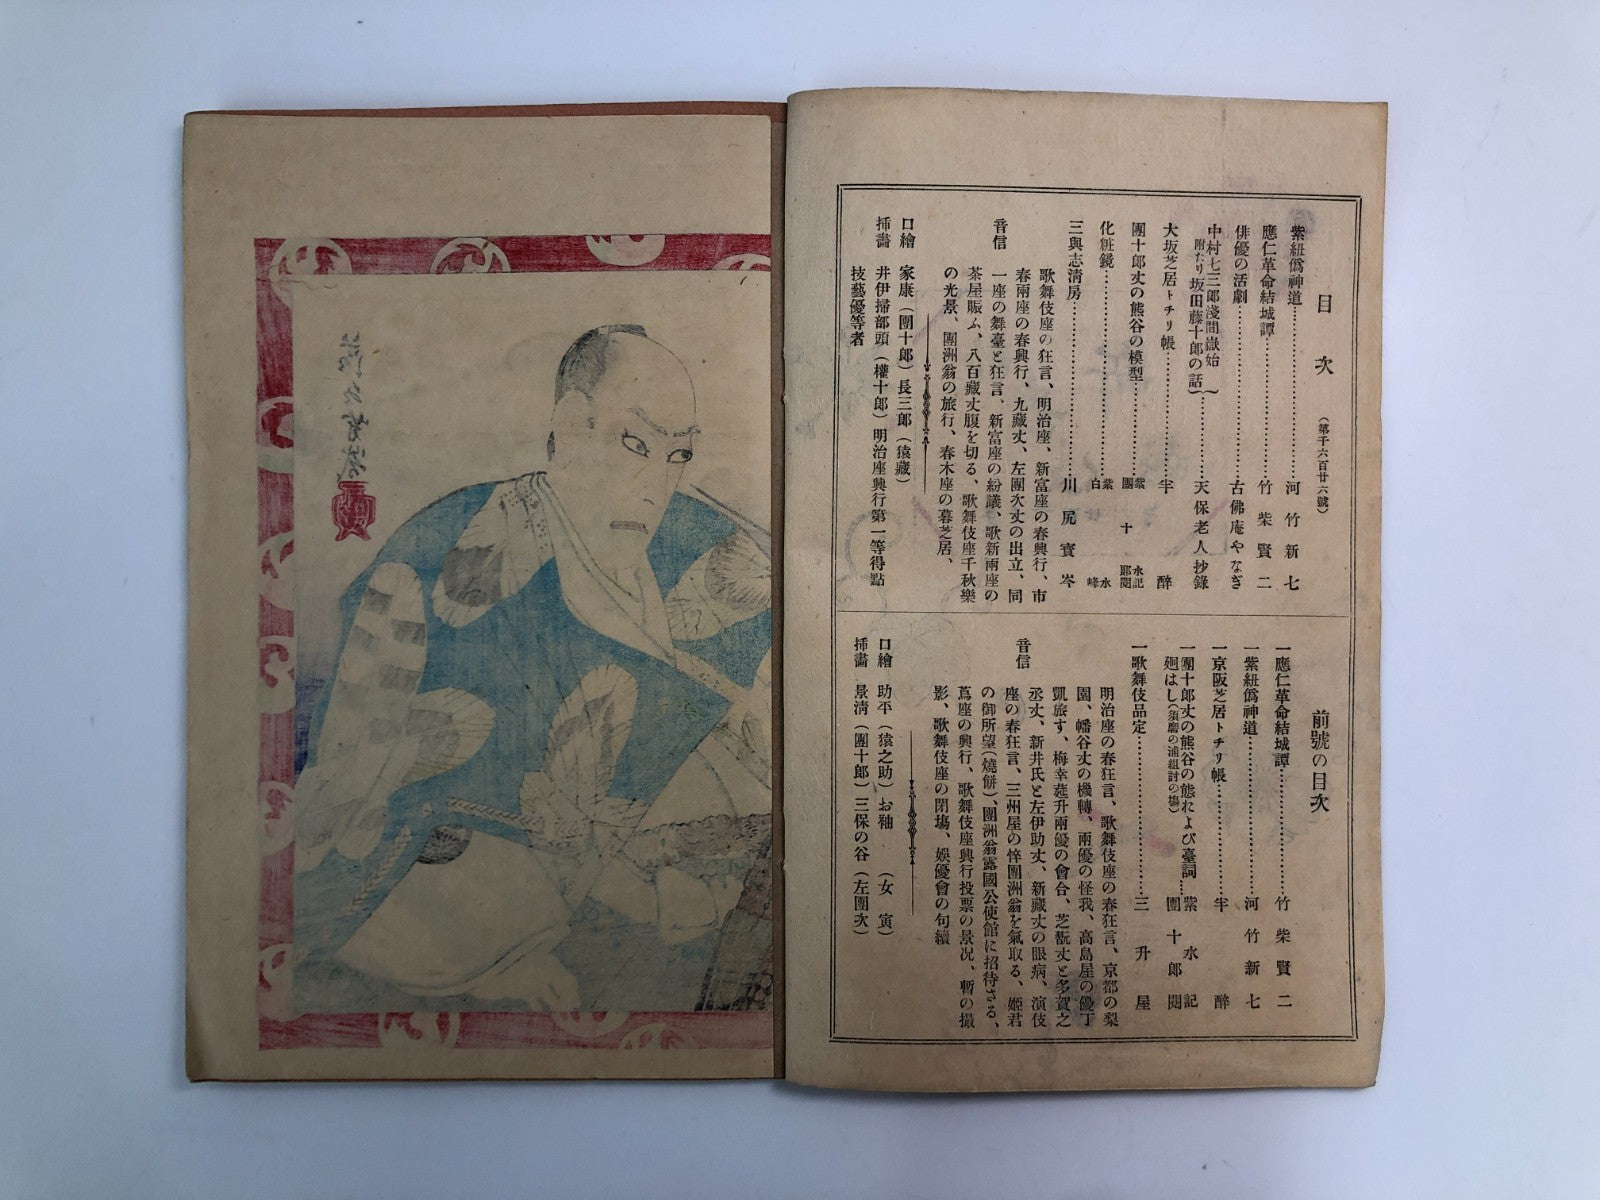 目次
（第千六百廿六號）
紫紐僞神道……河竹新七
應仁革命結城譚……竹柴賢二
俳優の活劇……古佛庵やなぎ
中村七三郎淺間嶽始
附たり坂田藤十郎の話……天保老人抄錄
大坂芝居トチリ帳……半醉
團十郎丈の熊谷の模型……紫水記
團十郎閱
化粧鏡……紫水
白峰
三與志淸房……川尻寶岑
音信
歌舞伎座の狂言、明治座、新富座の春興行、市
春兩座の春興行、九藏丈、左團次丈の出立、同
一座の舞臺と狂言、新富座の紛議、歌新兩座の
茶屋賑ふ、八百藏丈腹を切る、歌舞伎座千秋樂
の光景、團洲翁の旅行、春木座の暮芝居、
口繪　家康（團十郎）長三郎（猿藏）
挿畵　井伊掃部頭（權十郎）明治座興行第一等得點
技藝優等者
前號の目次
一應仁革命結城譚……竹柴賢二
一紫紐僞神道……河竹新七
一京阪芝居トチリ帳……半醉
一團十郎丈の熊谷の態および臺詞……紫水記
廻はし（須磨の浦組討の塲）團十郎閱
一歌舞伎品定……三升屋
音信
明治座の春狂言、歌舞伎座の春狂言、京都の梨
園、幡谷丈の機轉、兩優の怪我、高島屋の優丁
凱旅す、梅幸莚升兩優の會合、芝翫丈と多賀之
丞丈、新井氏と左伊助丈、新藏丈の眼病、演伎
座の春狂言、三州屋の悴團洲翁を氣取る、姬君
の御所望（燒餅）、團洲翁露國公使館に招待さる、
蔦座の興行、歌舞伎座興行投票の景况、暫の撮
影、歌舞伎座の閉塲、娛優會の句續
口繪　助平（猿之助）お袖（女寅）
挿畵　景淸（團十郎）三保の谷（左團次）